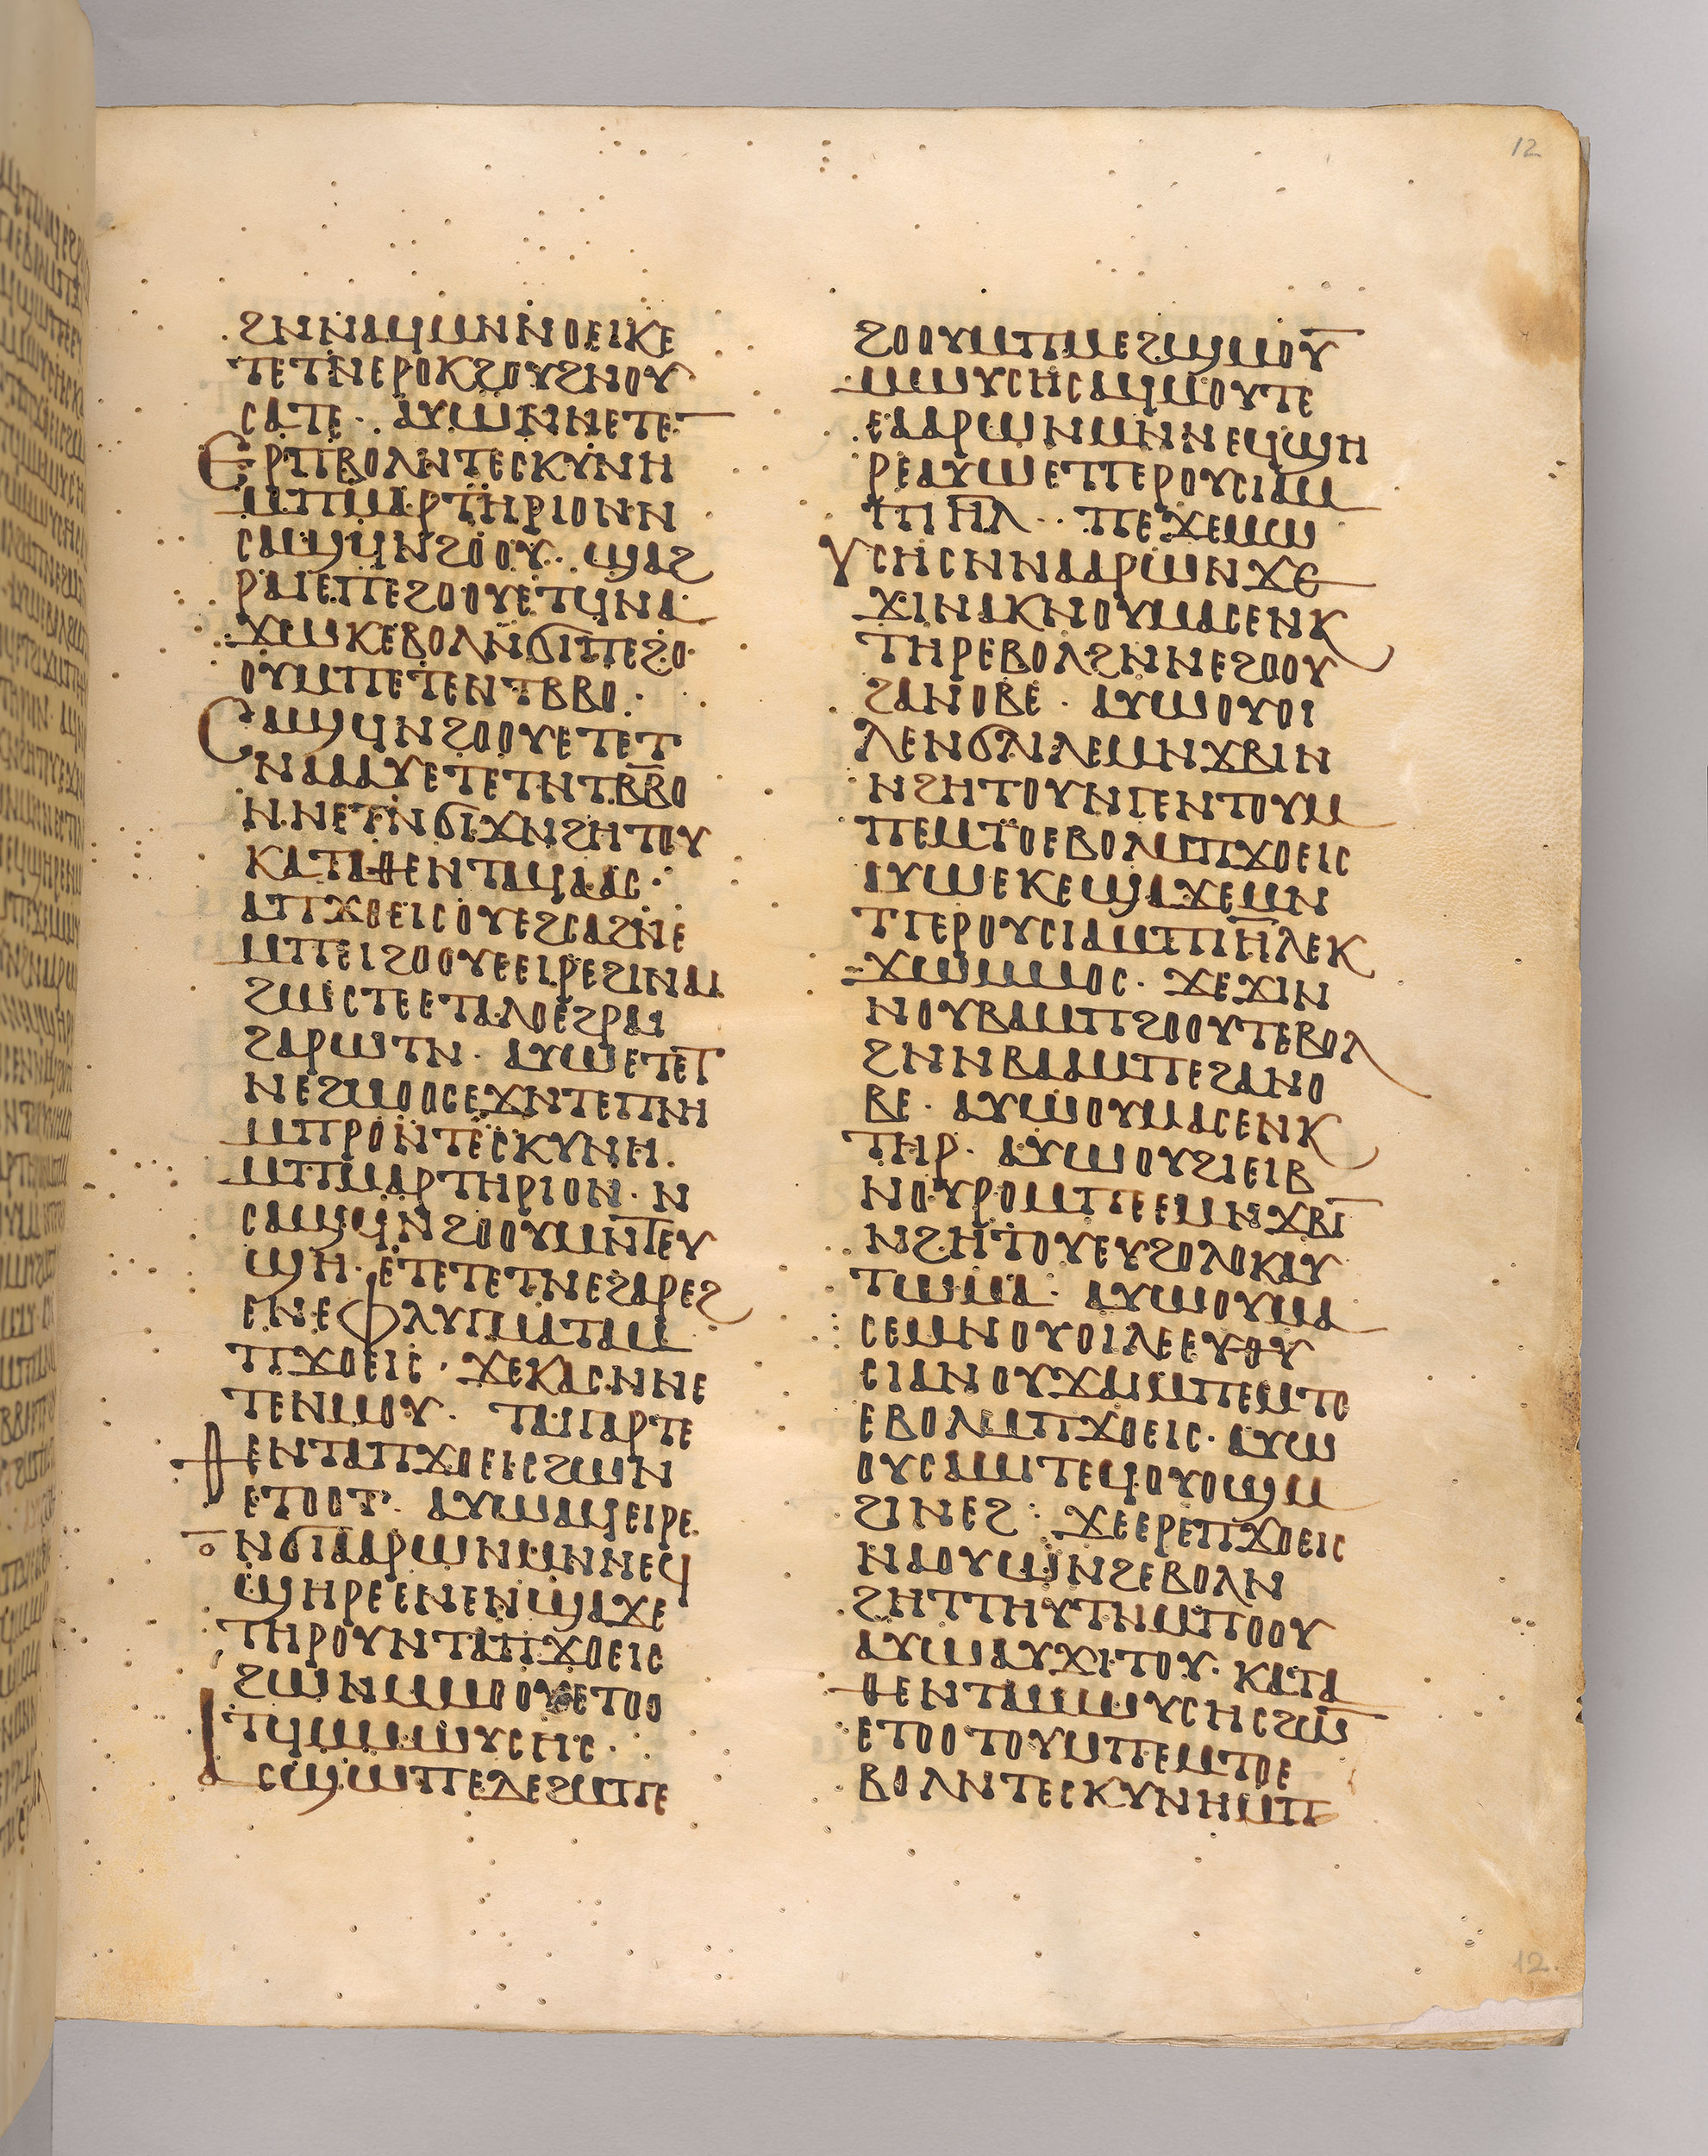 12
ϨⲚⲚⲀϤⲘⲚⲚⲞⲈⲒⲔⲈ
ⲦⲈⲦⲚⲈⲢⲞⲔϨⲞⲨϨⲚⲞⲨ
ⲤⲀⲦⲈ· ⲀⲨⲰⲚⲚⲈⲦⲈ
ⲈⲢⲠⲂⲞⲖⲚⲦⲈⲤⲔⲨⲚⲎ
ⲘⲠⲘⲀⲢⲦⲎⲢⲒⲞⲚⲚ
ⲤⲀϢϤⲚϨⲞⲞⲨ· ϢⲀϨ
ⲢⲀⲒⲈⲠⲈϨⲞⲞⲨⲈⲦϤⲚⲀ
ϪⲰⲔⲈⲂⲞⲖⲚϬⲒⲠⲈϨⲞ
ⲞⲨⲘⲠⲈⲦⲈⲚⲦⲂⲂⲞ·
ⲤⲀϢϤⲚϨⲞⲞⲨⲈⲦⲈⲦ
ⲚⲀⲀⲀⲨⲈⲦⲈⲦⲚⲦⲂⲂⲞ
ⲚⲚⲈⲦⲚϬⲒϪⲚϨⲎⲦⲞⲨ
ⲔⲀⲦⲀⲐⲈⲚⲦⲀϤⲀⲀⲤ·
ⲀⲠϪⲞⲈⲒⲤⲞⲨⲈϨⲤⲀϨⲚⲈ
ⲘⲠⲈⲒϨⲞⲞⲨⲈⲈⲒⲢⲈϨⲒⲚⲀⲒ
ϨⲰⲈⲤⲦⲈⲈⲦⲀⲖⲞⲈϨⲢⲀⲒ
ϨⲀⲢⲰⲦⲚ· ⲀⲨⲰⲈⲦⲈⲦ
ⲚⲈϨⲘⲞⲞⲤⲈϪⲚⲦⲈⲠⲚⲎ
ⲘⲠⲢⲞⲚⲦⲈⲤⲔⲨⲚⲎ
ⲘⲠⲘⲀⲢⲦⲎⲢⲒⲞⲚ· Ⲛ
ⲤⲀϢϤⲚϨⲞⲞⲨⲘⲚⲦⲈⲨ
ϢⲎ· ⲈⲦⲈⲦⲈⲦⲚⲈϨⲀⲢⲈϨ
ⲈⲚⲈⲪⲖⲨⲠⲘⲀⲦⲀⲘ
ⲠϪⲞⲈⲒⲤ· ϪⲈⲔⲀⲤⲚⲚⲈ
ⲦⲈⲚⲘⲞⲨ· ⲦⲀⲒⲄⲀⲢⲦⲈ
ⲐⲈⲚⲦⲀⲠϪⲞⲈⲒⲤϨⲰⲚ
ⲈⲦⲞⲞⲦ· ⲀⲨⲰⲀϤⲈⲒⲢⲈ
ⲚϬⲒⲀⲀⲢⲰⲚⲘⲚⲚⲈϤ
ϢⲎⲢⲈⲈⲚⲈⲚϢⲀϪⲈ
ⲦⲎⲢⲞⲨⲚⲦⲀⲠϪⲞⲈⲒⲤ
ϨⲰⲚⲘⲘⲞⲞⲨⲈⲦⲞⲞ
ⲦϤⲘⲘⲰⲨⲤⲎⲤ·
ⲀⲤϢⲰⲠⲈⲆⲈϨⲘⲠⲈ
ϨⲞⲞⲨⲘⲠⲘⲈϨϢⲘⲞⲨ
ⲘⲰⲨⲤⲎⲤⲀϤⲘⲞⲨⲦⲈ
ⲈⲀⲀⲢⲰⲚⲘⲚⲚⲈϤϢⲎ
ⲢⲈⲀⲨⲰⲈⲦⲄⲈⲢⲞⲨⲤⲒⲀⲘ
ⲠⲒⲎⲖ·· ⲠⲈϪⲈⲘⲰ
ⲨⲤⲎⲤⲚⲚⲀⲀⲢⲰⲚϪⲈ
ϪⲒⲚⲀⲔⲚⲞⲨⲘⲀⲤⲈⲚⲔ
ⲦⲎⲢⲈⲂⲞⲖϨⲚⲚⲈϨⲞⲞⲨ
ϨⲀⲚⲞⲂⲈ· ⲀⲨⲰⲞⲨⲞⲒ
ⲖⲈⲚϬⲖⲒⲖⲈⲘⲚϪⲂⲒⲚ
ⲚϨⲎⲦⲞⲨⲚⲄⲈⲚⲦⲞⲨⲘ
ⲠⲈⲘⲦⲞⲈⲂⲞⲖⲘⲠϪⲞⲈⲒⲤ
ⲀⲨⲰⲈⲔⲈϢⲀϪⲈⲘⲚ
ⲦⲄⲈⲢⲞⲨⲤⲒⲀⲘⲠⲒⲎⲖⲈⲔ
ϪⲰⲘⲘⲞⲤ· ϪⲈϪⲒⲚ
ⲚⲞⲨⲂⲀⲘⲠϨⲞⲞⲨⲦⲈⲂⲞⲖ
ϨⲚⲚⲂⲀⲀⲘⲠⲈϨⲀⲚⲞ
ⲂⲈ· ⲀⲨⲰⲞⲨⲘⲀⲤⲈⲚⲔ
ⲦⲎⲢ· ⲀⲨⲰⲞⲨϨⲒⲈⲒⲂ
ⲚⲞⲨⲢⲞⲘⲠⲈⲈⲘⲚϪⲂⲒ
ⲚϨⲎⲦⲞⲨⲈⲨϨⲞⲖⲞⲔⲀⲨ
ⲦⲰⲘⲀ· ⲀⲨⲰⲞⲨⲘⲀ
ⲤⲈⲘⲚⲞⲨⲞⲒⲖⲈⲈⲨⲐⲨ
ⲤⲒⲀⲚⲞⲨϪⲀⲒⲘⲠⲈⲘⲦⲞ
ⲈⲂⲞⲖⲘⲠϪⲞⲈⲒⲤ· ⲀⲨⲰ
ⲞⲨⲤⲀⲘⲒⲦⲈϤⲞⲨⲞϢⲘ
ϨⲒⲚⲈϨ: ϪⲈⲈⲢⲈⲠϪⲞⲈⲒⲤ
ⲚⲀⲞⲨⲰⲚϨⲈⲂⲞⲖⲚ
ϨⲎⲦⲦⲎⲨⲦⲚⲘⲠⲞⲞⲨ
ⲀⲨⲰⲀⲨϪⲒⲦⲞⲨ· ⲔⲀⲦⲀ
ⲐⲈⲚⲦⲀⲘⲰⲨⲤⲎⲤϨⲰ
ⲈⲦⲞⲞⲦⲞⲨⲘⲠⲈⲘⲦⲞⲈ
ⲂⲞⲖⲚⲦⲈⲤⲔⲨⲚⲎⲘⲠ
12.